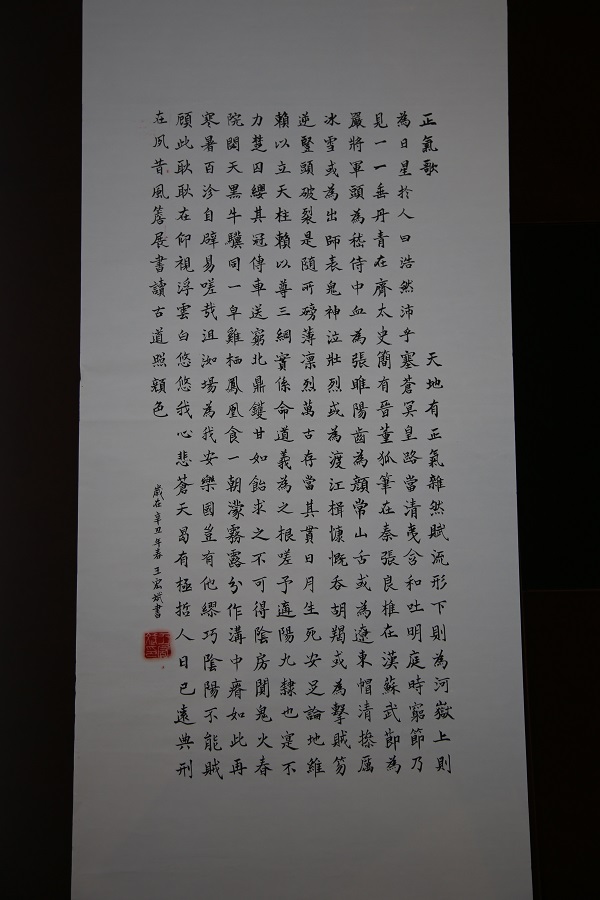 正氣歌
天地有正氣雜然賦流形下則為河嶽上則
為日星於人曰浩然沛乎塞蒼冥皇路當清夷含和吐明庭時窮節乃
見一一垂丹青在齊太史簡有晉董狐筆在秦張良椎在漢蘇武節為
嚴將軍頭為嵇侍中血為張睢陽齒為顏常山舌或為遼東帽清操厲
冰雪或為出師表鬼神泣壯烈或為渡江楫慷慨吞胡羯或為擊賊笏
逆豎頭破裂是隨所磅薄凛烈萬古存當其貫日月生死安足論地維
賴以立天柱賴以尊三綱實係命道義為之根嗟予遘陽九隸也寔不
力楚囚纓其冠傳車送窮北鼎鑊甘如飴求之不可得陰房闃鬼火春
院閟天黑牛驥同一皁雞栖鳳凰食一朝濛霧露分作溝中瘠如此再
寒暑百沴自辟易嗟哉沮洳場為我安樂國豈有他繆巧陰陽不能賊
顧此耿耿在仰視浮雲白悠悠我心悲蒼天曷有極哲人日已遠典刑
在夙昔風簷展書讀古道照顏色
歲在辛丑年春王宏斌書